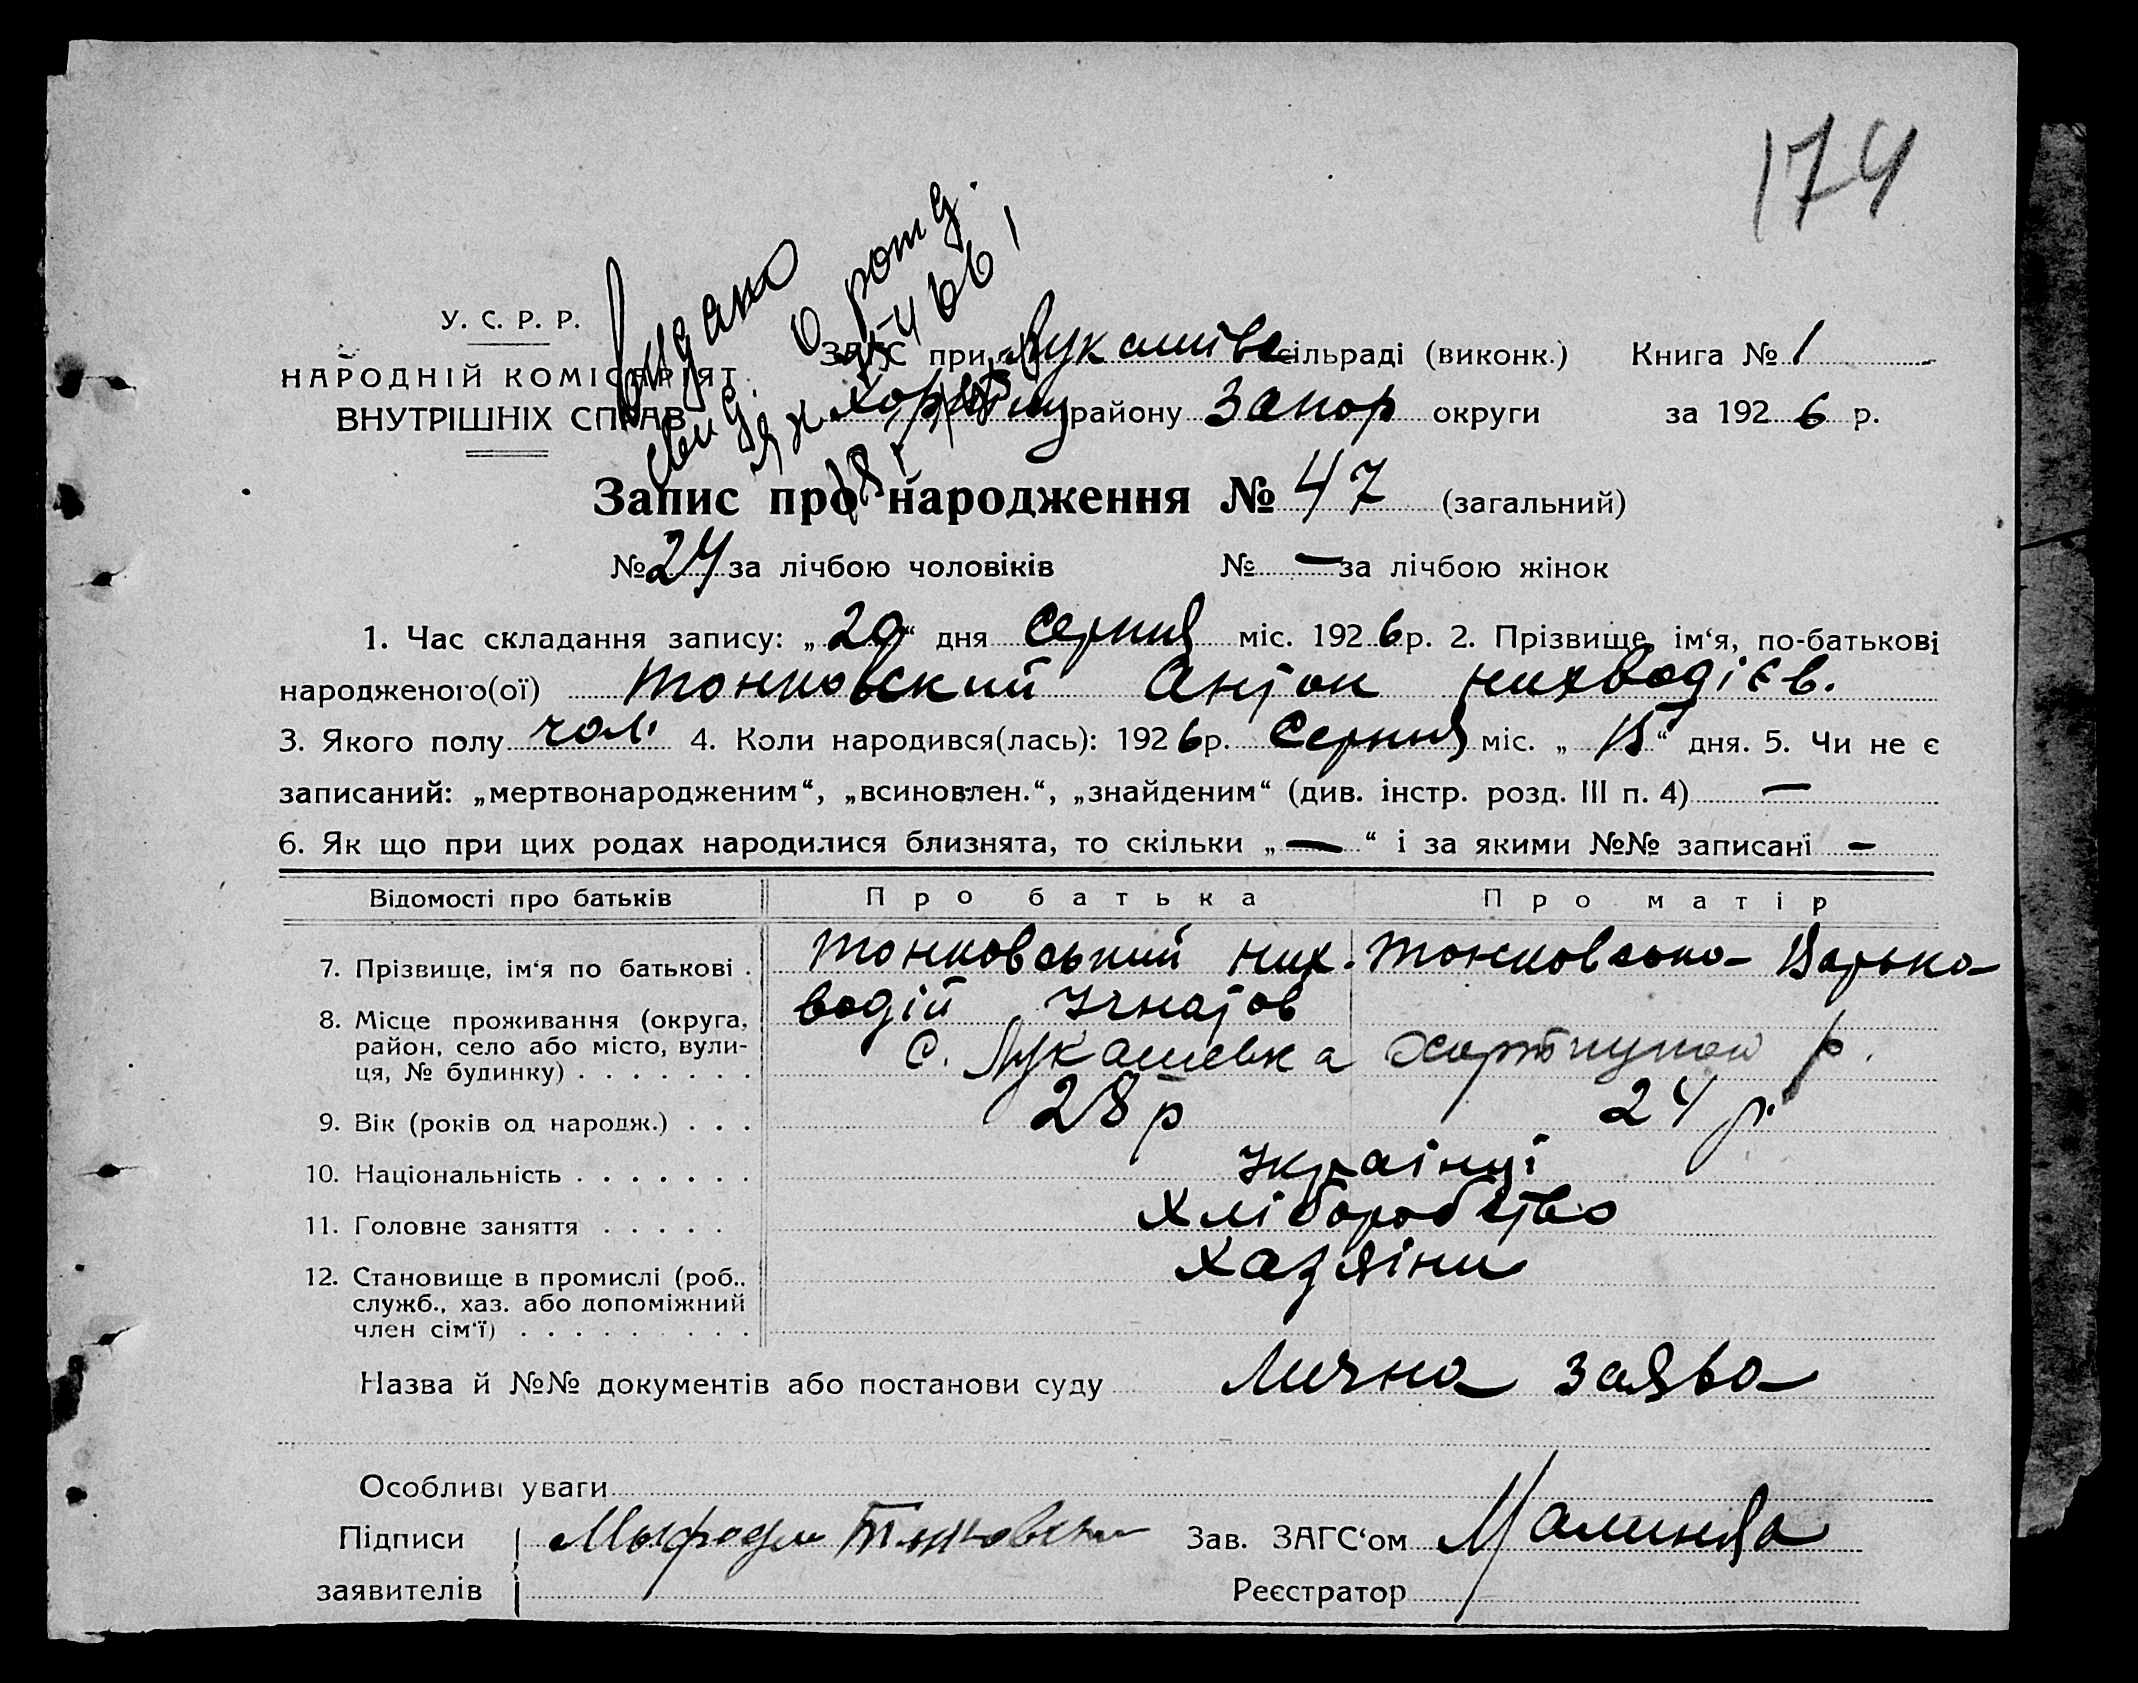 174
Видано
свид. о рожд.
У. С. Р. Р.
НАРОДНІЙ КОМІСАРІЯТ
ВНУТРІШНІХ СПРАВ
ЗАГС при Лукашівс сільраді (виконк.) Книга № 1
району Запор округи за 1926 р.
Запис про народження № 47 (загальний)
№ 24 за лічбою чоловіків № — за лічбою жінок
1. Час складання запису: „20“ дня Серпня міс. 1926 р. 2. Прізвище, ім‘я, по-батькові
народженого(ої) Тонковский Антон
3. Якого полу чол. 4. Коли народився(лась): 1926 р. Серпня міс. „15“ дня. 5. Чи не є
записаний: „мертвонародженим“, „всиновлен.“, „знайденим“ (див. інстр. розд. III п. 4) —
6. Як що при цих родах народилися близнята, то скільки „—“ і за якими №№ записані —
Відомості про батьків Про батька Про матір
7. Прізвище, ім‘я по батькові . Тонковський Них- Тонковська
водій Ігнатов
8. Місце проживання (округа,
район, село або місто, вули-
ця, № будинку) . . . . . . . С. Лукашевка р.
9. Вік (років од народж.) . . . 28 р 24 р.
10. Національність . . . . . . . Українці
11. Головне заняття . . . . . Хліборобство
12. Становище в промислі (роб., Хазяіни
служб., хаз. або допоміжний
член сім‘ї) . . . . . . . . .
Назва й №№ документів або постанови суду Лична заява
Особливі уваги
Підписи Зав. ЗАГС‘ом
заявителів Реєстратор